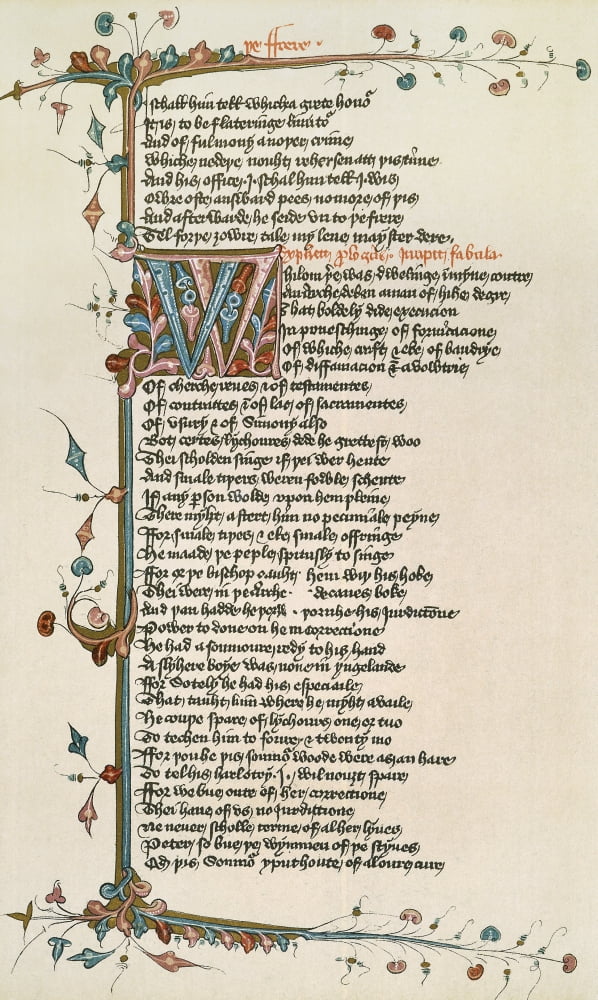 þe ffrere ·
I schall him telle whicha grete honõ
It is to be flateringe limitõ
And of ful mony anoþer crime
Whiche nedeþ nouht rehersen att þis time
And his office I schal him telle I wis
Oure oste answard pees no more of þis
And afterwarde he seide vn to þe frere
Tel forþe ȝowre tale my leue mayster dere
Explicit prologus · Incipit fabula
Whilom þer was dwellinge in myne contre
An erchedeken a man of hihe degre
That boldely dide execucion
In poneschinge of fornicacione
Of whiche craft & eke of baudrye
Of diffamacion & avowtrie
Of chercherenes & of testamentes
Of contractes & of lac of sacramentes
Of vsury & of Simony also
Bot certes lychoures dede he grettest woo
Thei scholden singe if þei wer hente
And smale tiþers weren fowle schente
If any pson wolde vpon hem pleine
There myht astert him no pecuniale peyne
Ffor smale tiþes & eke smale offringe
He maade þe peple spitusly to singe
Ffor er þe bischop cauht hem wiþ his hoke
Thei were in þe erche decanes boke
And þan hadde he þorw his Jurdictione
Power to done on hem correctione
He had a somnoure redy to his hand
A slyhere boye was none in yngelande
Ffor Sotely he had his especiaile
That tauht him where he myht availe
He couþe spare of lychours one or tuo
To techen him to foure & twenty mo
Ffor þouhe þis somnõ woode were as an hare
To tel his harlotry I wil nouȝt spare
Ffor we bue oute of her correctione
Thei haue of vs no Jurdictione
Ne neuer scholle terme of al her lyues
Peter so bue þe wymmen of þe styues
Qd þis Somnõ yputhoute of al oure cure